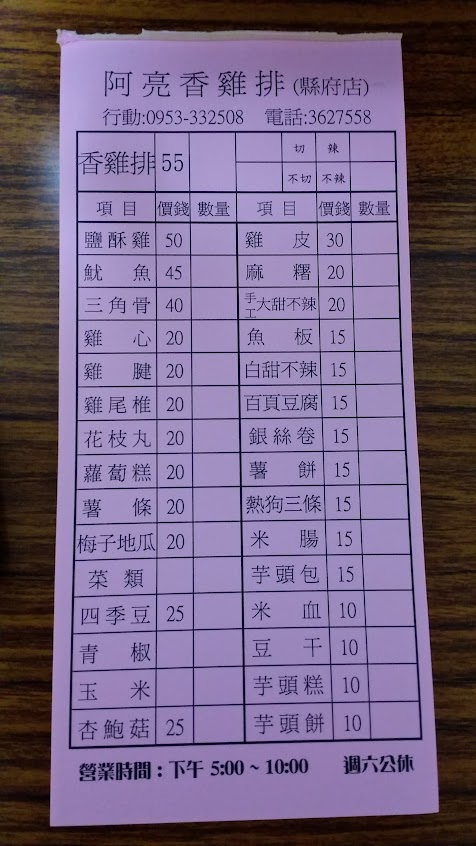 阿亮香雞排(縣府店)
行動:0953-332508 電話:3627558
香雞排 55 切 辣
不切 不辣
項目 價錢 數量 項目 價錢 數量
鹽酥雞 50 雞皮 30
魷魚 45 麻糬 20
三角骨 40 手工大甜不辣 20
雞心 20 魚板 15
雞腱 20 白甜不辣 15
雞尾椎 20 百頁豆腐 15
花枝丸 20 銀絲卷 15
蘿蔔糕 20 薯餅 15
薯條 20 熱狗三條 15
梅子地瓜 20 米腸 15
菜類 芋頭包 15
四季豆 25 米血 10
青椒 豆干 10
玉米 芋頭糕 10
杏鮑菇 25 芋頭餅 10
營業時間：下午 5:00 ~ 10:00 週六公休